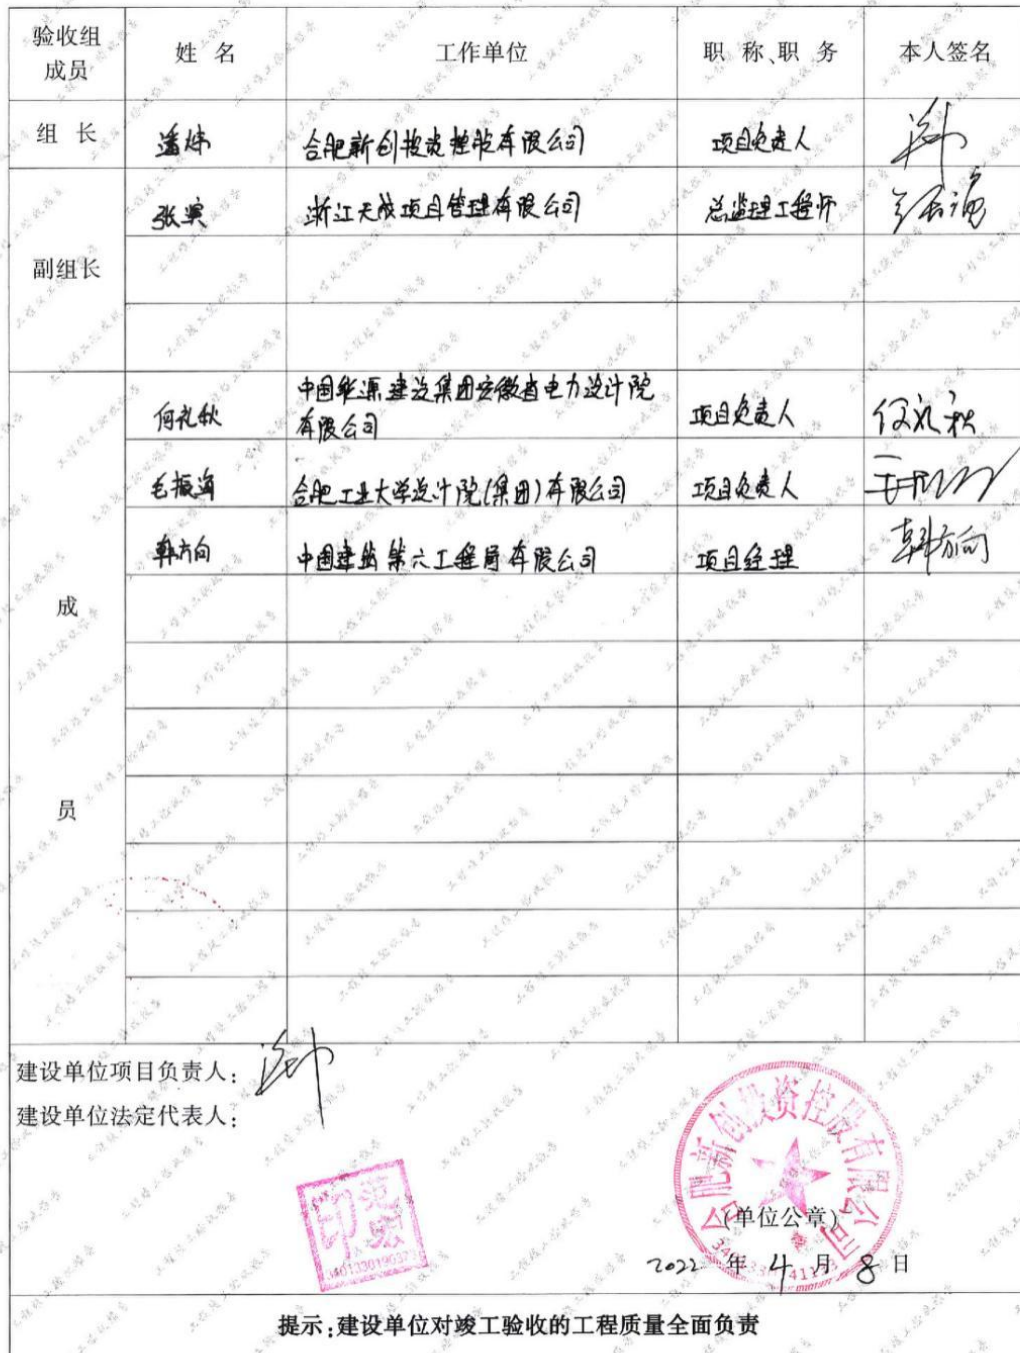 验收组成员 姓 名 工作单位 职 称、职 务 本人签名
组 长 潘炜 合肥新创投资控股有限公司 项目负责人
副组长 张寅 浙江天成项目管理有限公司 总监理工程师
成员
何礼秋 中国能源建设集团安徽省电力设计院
有限公司 项目负责人 何礼秋
毛振海 合肥工业大学设计院(集团)有限公司 项目负责人
韩方向 中国建筑第六工程局有限公司 项目经理 韩方向
建设单位项目负责人:
建设单位法定代表人:
合肥新创投资控股有限公司
(单位公章)
2022 年 4 月 8 日
提示:建设单位对竣工验收的工程质量全面负责
工程竣工验收报告